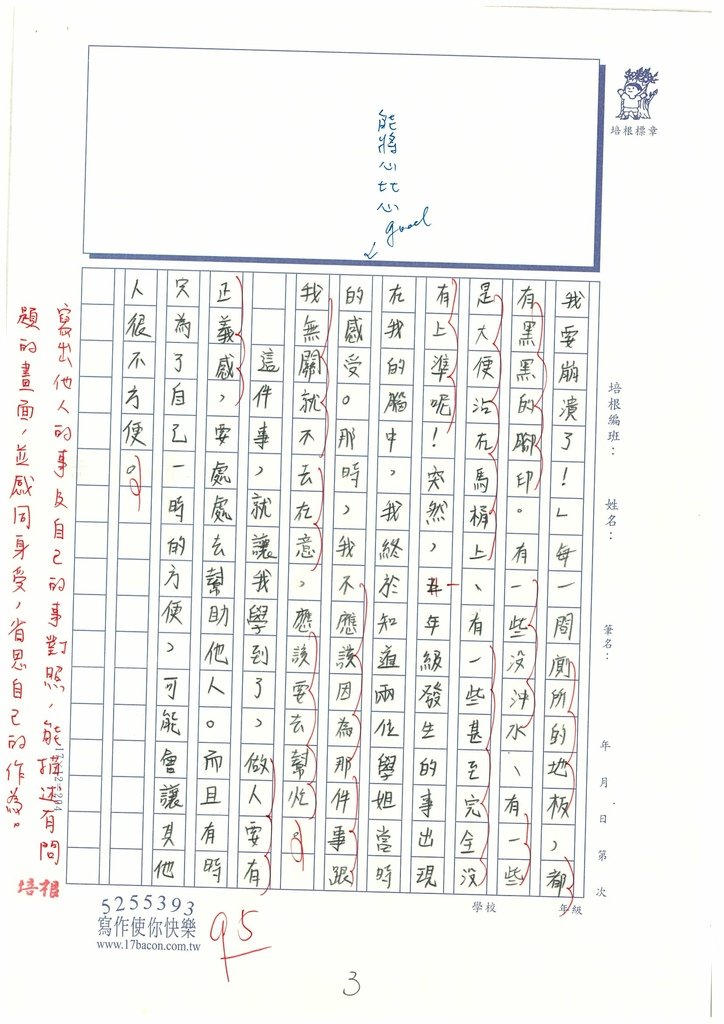 培根標章
能將心比心
good
培根編班：
姓名：
筆名：
年 月 日 第 次
學校
年級
我要崩潰了！」每一間廁所的地板，都
有黑黑的腳印。有一些沒沖水、有一些
是大便沾在馬桶上、有一些甚至完全沒
有上準呢！突然，一年級發生的事出現
在我的腦中，我終於知道兩位學姐當時
的感受。那時，我不應該因為那件事跟
我無關就不去在意，應該要去幫忙。
這件事，就讓我學到了，做人要有
正義感，要處處去幫助他人。而且有時
只為了自己一時的方便，可能會讓其他
人很不方便。
寫出他人的事及自己的事對照，能描述有問
題的畫面，並感同身受，省思自己的作為。
培根
5255393
寫作使你快樂
www.17bacon.com.tw
95
3